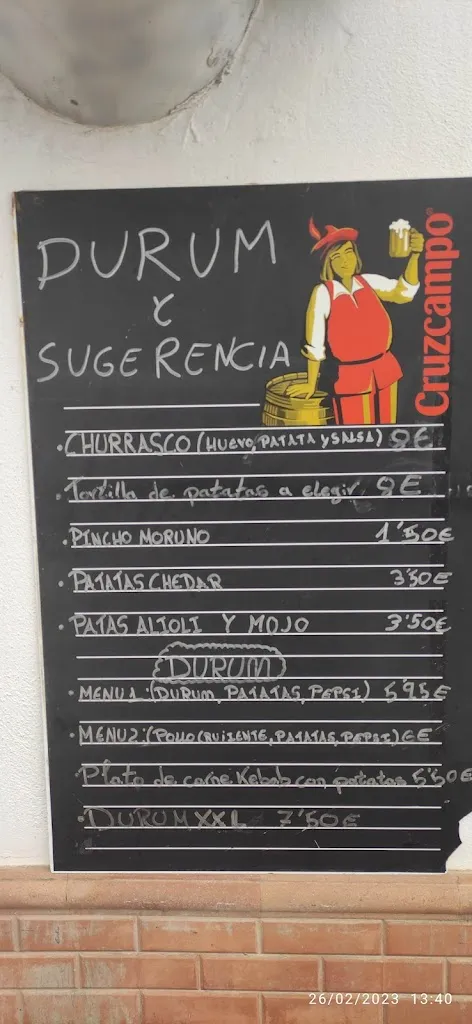 DURUM
Y
SUGERENCIA
Cruzcampo®
• CHURRASCO (HUEVO, PATATA Y SALSA) 8€
• Tortilla de patatas a elegir 8€
• PINCHO MORUNO 1'50€
• PATATAS CHEDAR 3'50€
• PATAS ALIOLI Y MOJO 3'50€
DURUM
• MENU 1: (DURUM, PATATAS, PEPSI) 5'95€
• MENU 2: (POLLO CRUJIENTE, PATATAS, PEPSI) 6€
Plato de carne Kebab con patatas 5'50€
• DURUM XXL 7'50€
26/02/2023 13:40